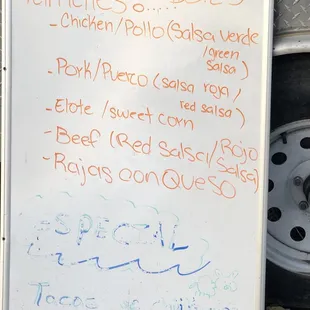 -Chicken/Pollo (Salsa verde
/green
Salsa)
-Pork/Puerco (salsa roja/
red salsa)
-Elote/sweet corn
-Beef (Red Salsa/Rojo
Salsa)
-Rajas con Queso
SPECIAL
Tacos